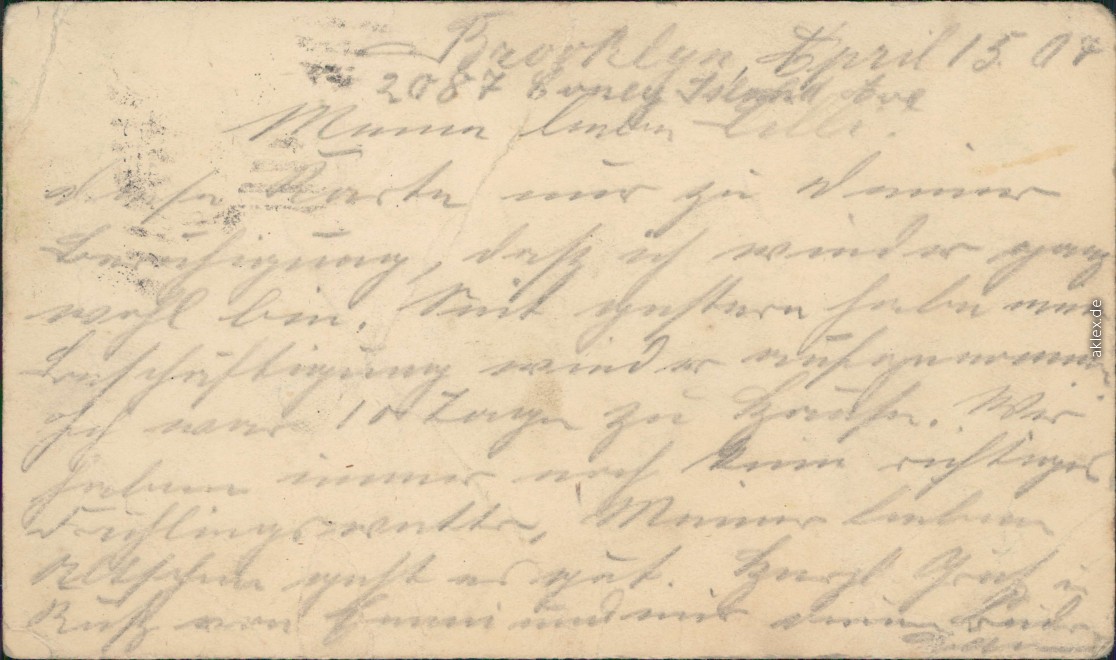 Brooklyn, April 15. 07
2087 Coney Island Ave
Meine liebe Lilli!
diese Karte nur zu deiner
Beruhigung, daß ich wieder ganz
wohl bin. Seit gestern habe meine
Beschäftigung wieder aufgenommen
Ich war 10 Tage zu Hause. Wir
haben immer noch kein richtiges
Frühlingswetter, Meiner lieben
geht es gut. Herzl Gruß u
Kuß von und mir dein Bruder
aklex.de